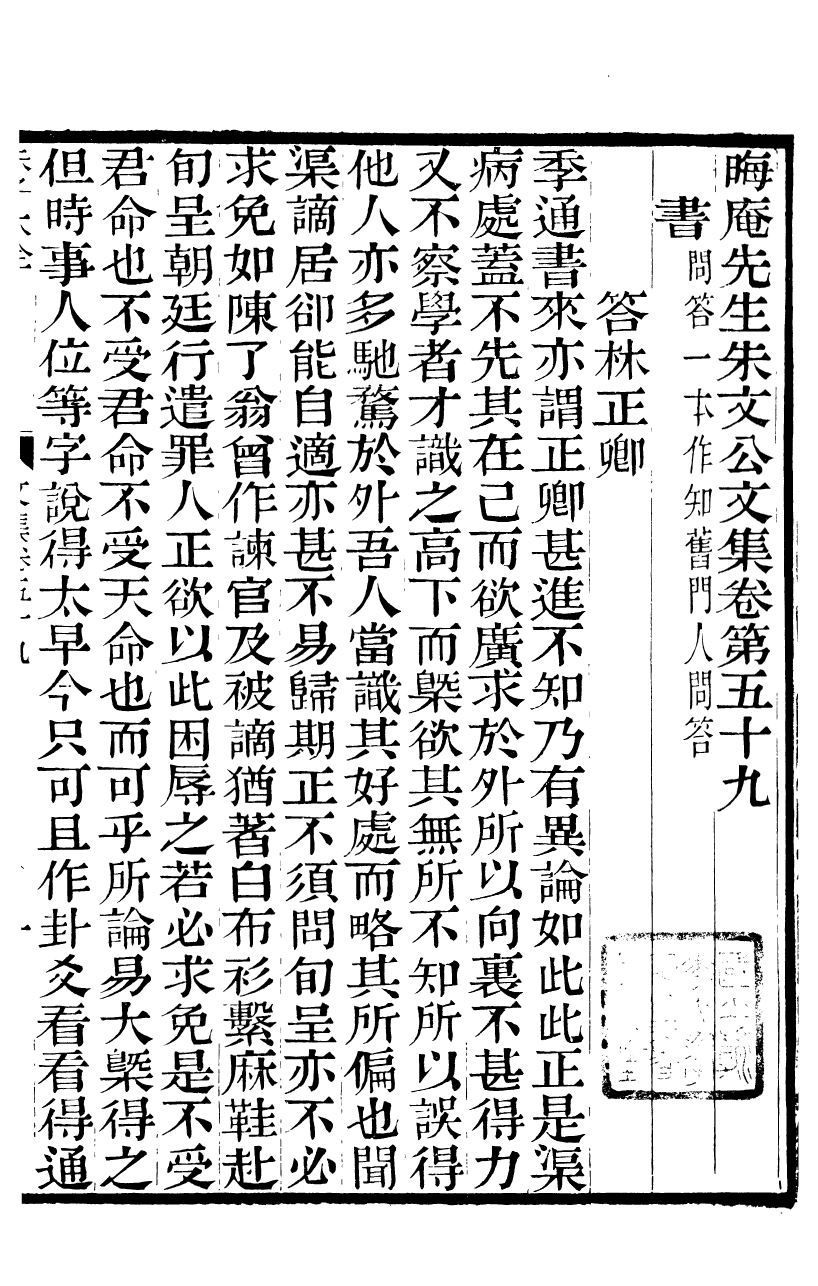 晦庵先生朱文公文集卷第五十九
書問答一本作知舊門人問答
答林正卿
季通書來亦謂正卿甚進不知乃有異論如此此正是渠
病處蓋不先其在己而欲廣求於外所以向裏不甚得力
又不察學者才識之高下而槩欲其無所不知所以誤得
他人亦多馳騖於外吾人當識其好處而略其所偏也聞
渠謫居卻能自適亦甚不易歸期正不須問旬呈亦不必
求免如陳了翁曾作諫官及被謫猶著白布衫繫麻鞋赴
旬呈朝廷行遣罪人正欲以此困辱之若必求免是不受
君命也不受君命不受天命也而可乎所論易大槩得之
但時事人位等字說得太早今只可且作卦爻看看得通